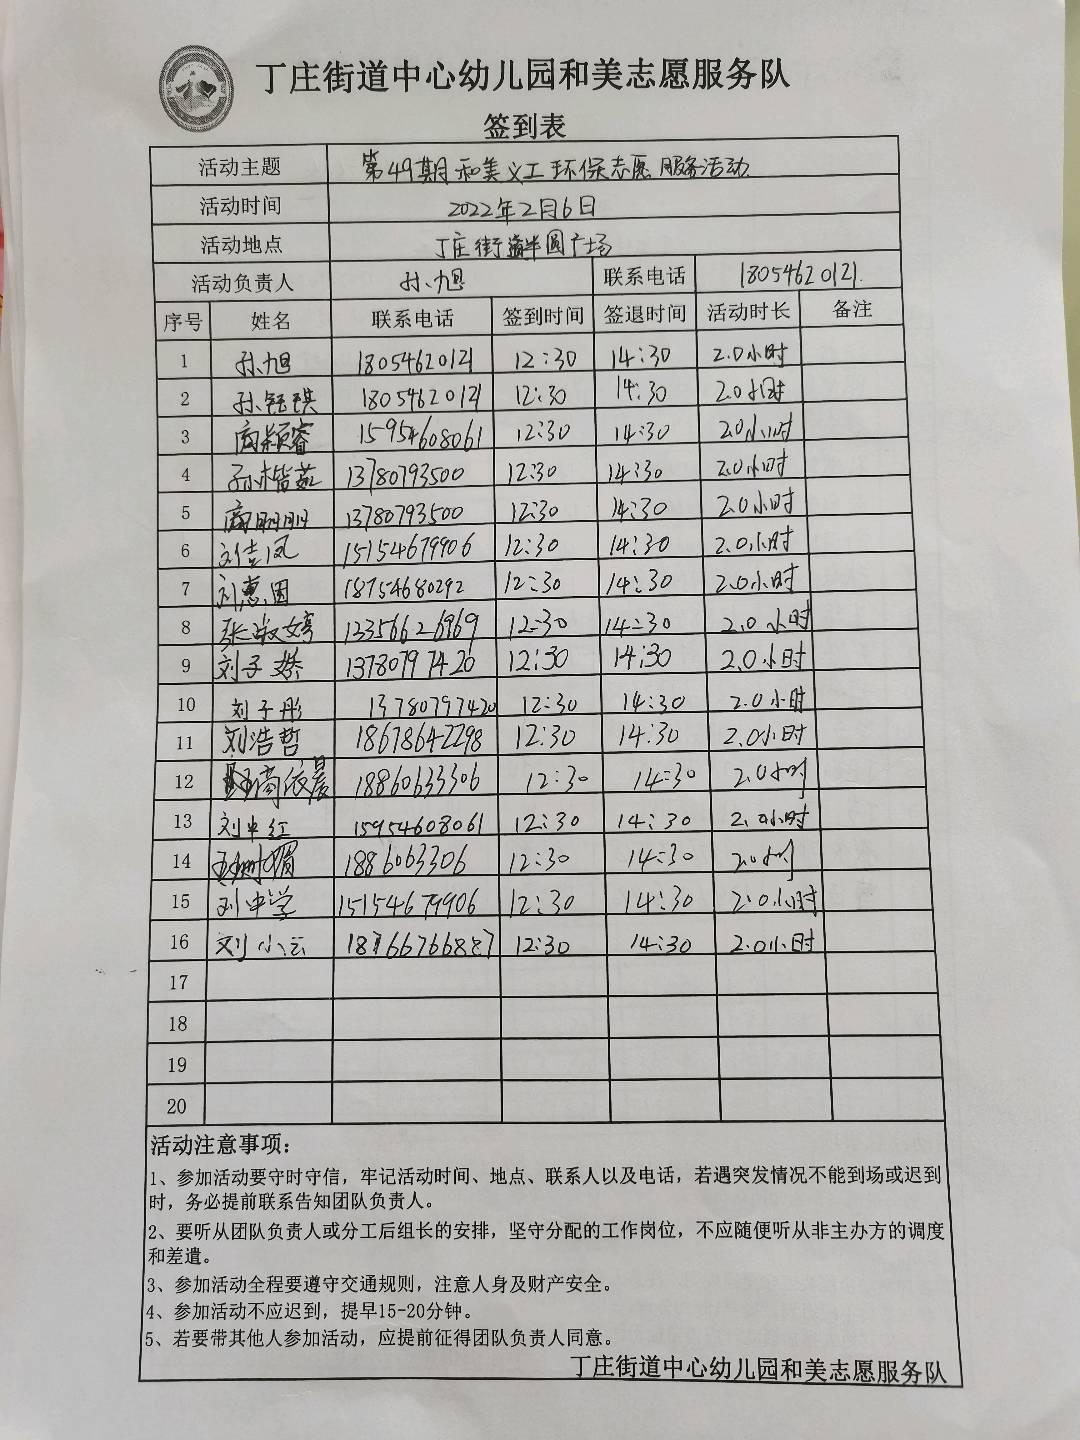 丁庄街道中心幼儿园和美志愿服务队
签到表
活动主题 第49期和美义工环保志愿服务活动
活动时间 2022年2月6日
活动地点 丁庄街道半圆广场
活动负责人 孙旭 联系电话 18054620121.
序号 姓名 联系电话 签到时间 签退时间 活动时长 备注
1 孙旭 18054620121 12:30 14:30 2.0小时
2 孙钰琪 18054620121 12:30 14:30 2.0小时
3 商颖睿 15954608061 12:30 14:30 2.0小时
4 孙楷茹 13780793500 12:30 14:30 2.0小时
5 商丽丽 13780793500 12:30 14:30 2.0小时
6 刘佳凤 15154679906 12:30 14:30 2.0小时
7 刘惠因 18754680292 12:30 14:30 2.0小时
8 张淑婷 13356626969 12:30 14:30 2.0小时
9 刘子 13780797420 12:30 14:30 2.0小时
10 刘子彤 13780797420 12:30 14:30 2.0小时
11 刘浩哲 18678642298 12:30 14:30 2.0小时
12 商依晨 18860633306 12:30 14:30 2.0小时
13 刘中红 15954608061 12:30 14:30 2.0小时
14 1886063306 12:30 14:30 2.0小时
15 刘中学 15154679906 12:30 14:30 2.0小时
16 刘小云 18766766887 12:30 14:30 2.0小时
17
18
19
20
活动注意事项：
1、参加活动要守时守信，牢记活动时间、地点、联系人以及电话，若遇突发情况不能到场或迟到
时，务必提前联系告知团队负责人。
2、要听从团队负责人或分工后组长的安排，坚守分配的工作岗位，不应随便听从非主办方的调度
和差遣。
3、参加活动全程要遵守交通规则，注意人身及财产安全。
4、参加活动不应迟到，提早15-20分钟。
5、若要带其他人参加活动，应提前征得团队负责人同意。
丁庄街道中心幼儿园和美志愿服务队